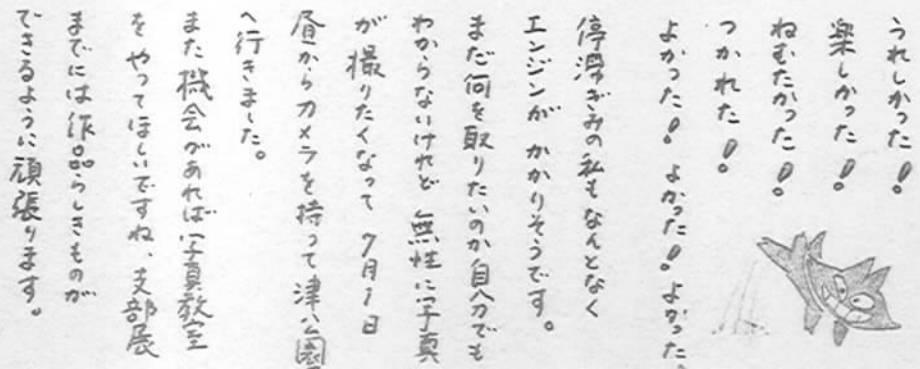 うれしかった!
楽しかった!
ねむたかった!
つかれた!
よかった! よかった! よかった
停滞ぎみの私もなんとなく
エンジンが かかりそうです。
まだ何を取りたいのか自分でも
わからないけれど 無性に写真
が撮りたくなって 7月1日
昼からカメラを持って津公園
へ行きました。
また機会があれば写真教室
を やってほしいですね、支部展
までには作品らしきものが
できるように頑張ります。